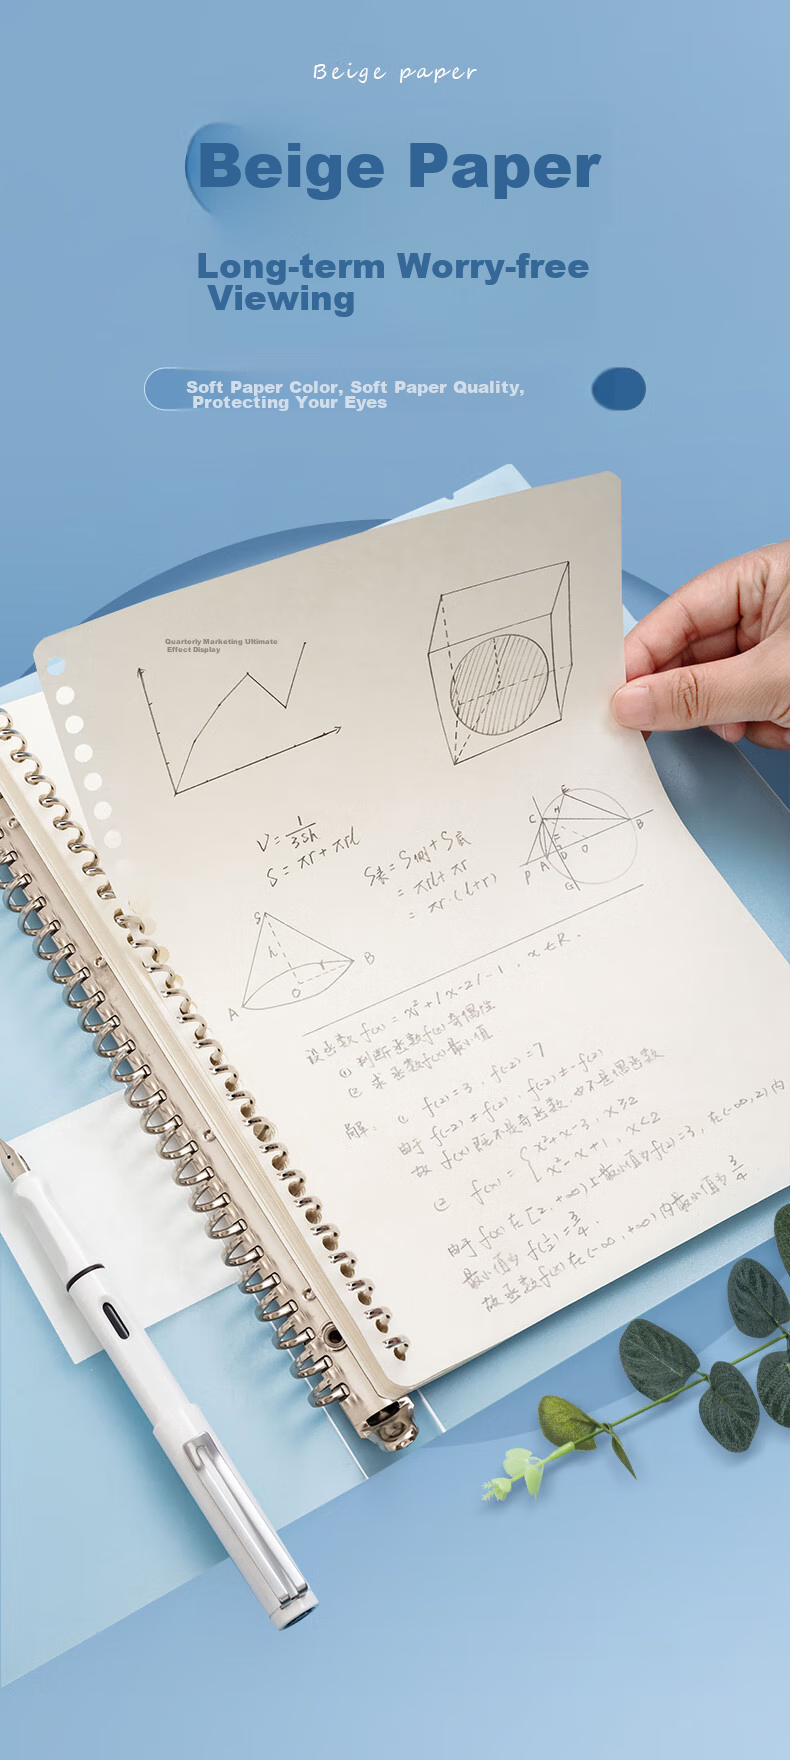 Beige paper
Beige Paper
Long-term Worry-free
Viewing
Soft Paper Color, Soft Paper Quality,
Protecting Your Eyes
Quarterly Marketing Ultimate
Effect Display
V = 1/3Sh
S = πr + πrl
S表 = S侧 + S底
= πrl + πr
= πr·(l+r)
C E B
P A D O
G
S
h
A O B
设函数 f(x) = x² + |x-2| - 1 , x∈R.
① 判断函数f(x)奇偶性
② 求函数f(x)最小值
解: ① f(2)=3 , f(-2)=7
由于 f(-2)≠f(2) , f(-2)≠-f(2)
故 f(x)既不是奇函数,也不是偶函数
② f(x) = { x²+x-3 , x≥2
x²-x+1 , x<2
由于 f(x) 在[2,+∞)上最小值为f(2)=3, 在(-∞,2)内
最小值为 f(1/2)=3/4.
故函数f(x)在(-∞,+∞)内最小值为3/4.